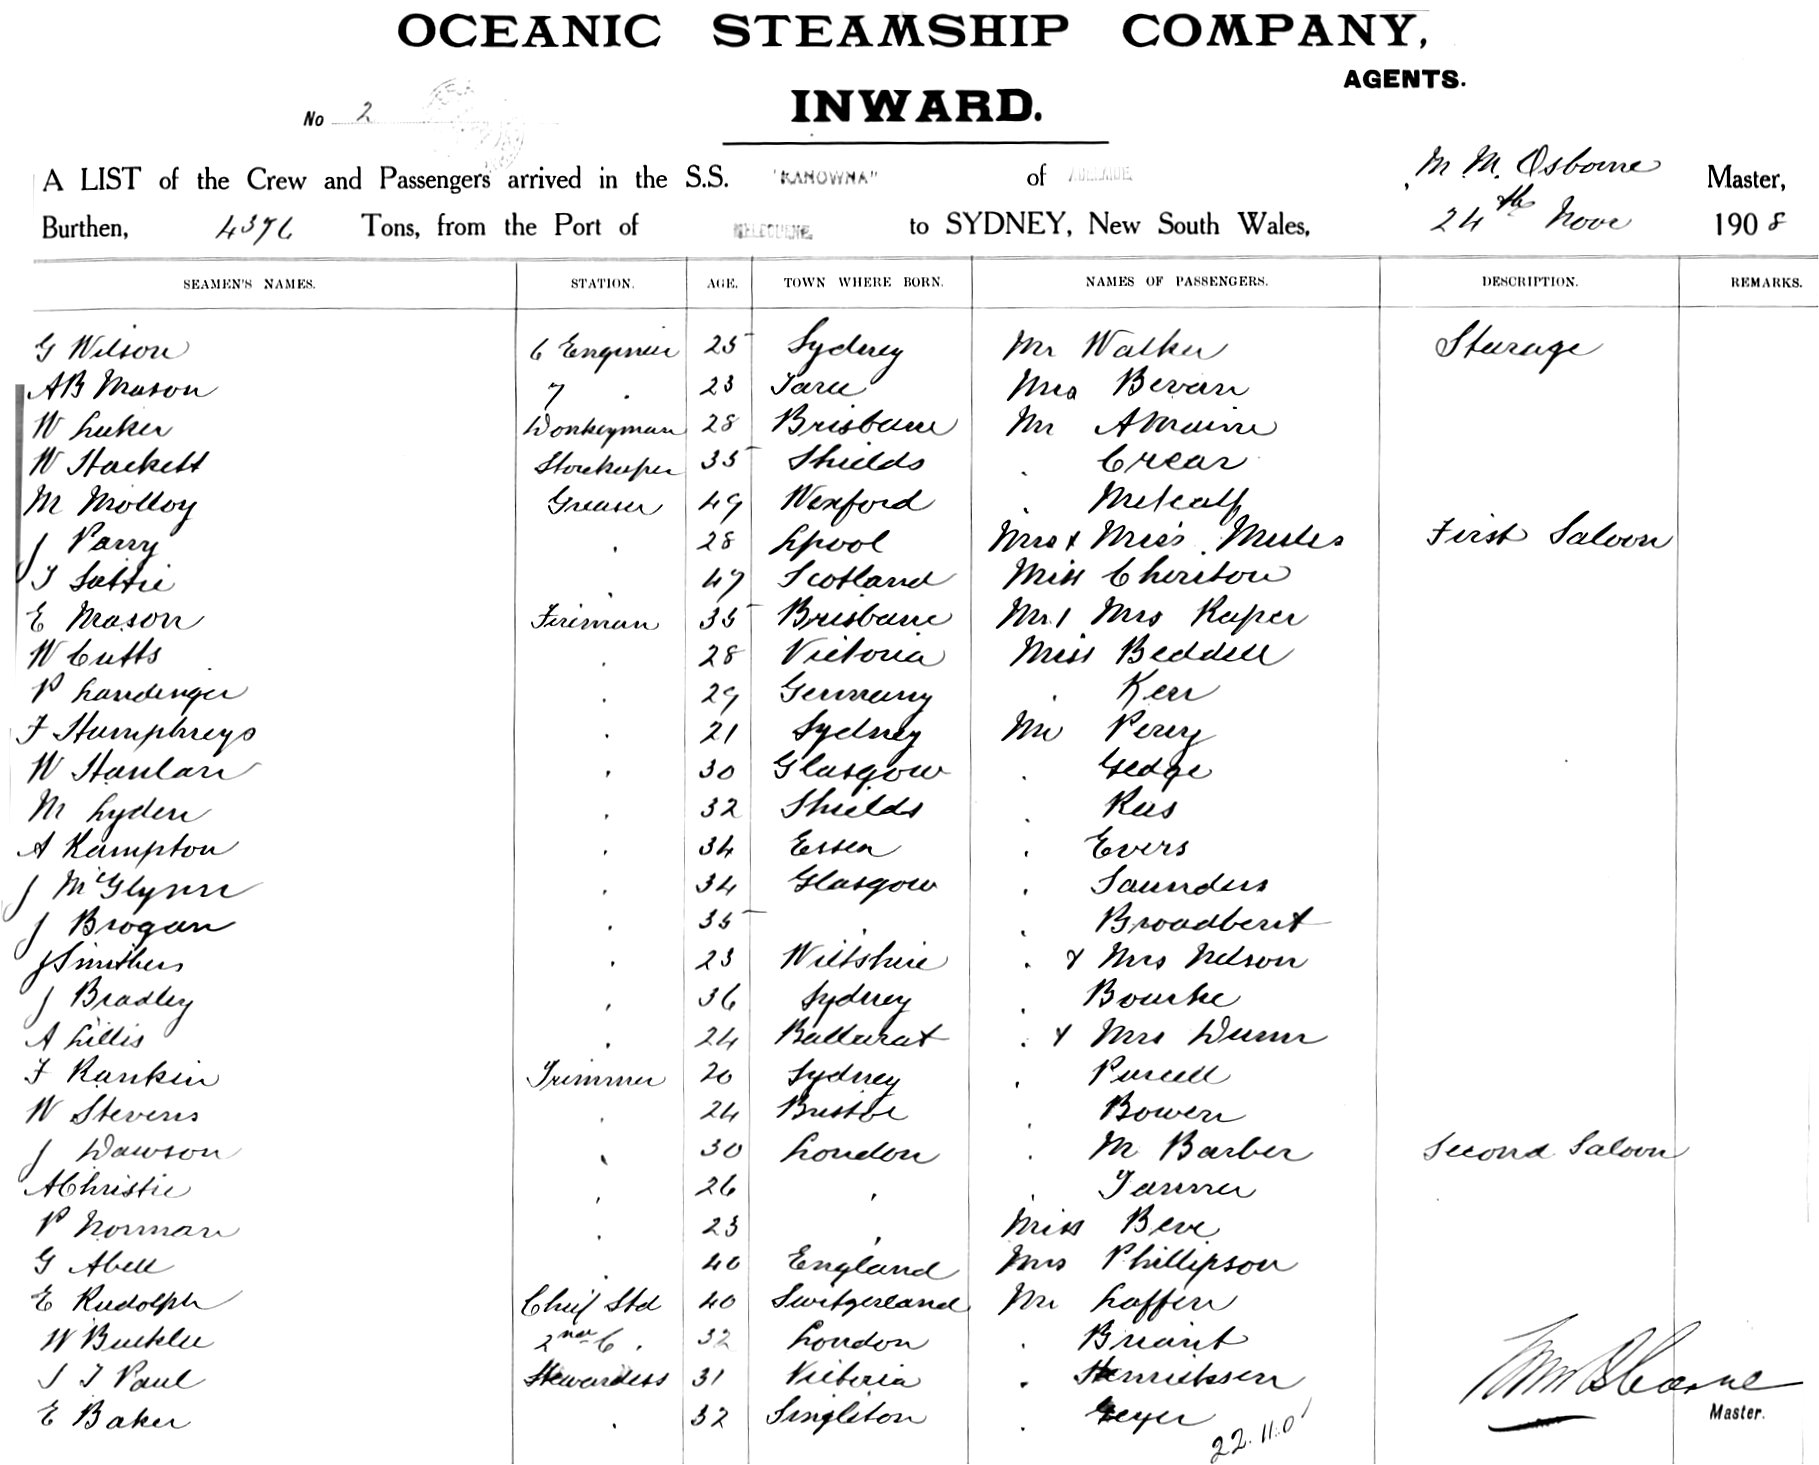 OCEANIC STEAMSHIP COMPANY,
AGENTS.
INWARD.
No 2
A LIST of the Crew and Passengers arrived in the S.S. "KANOWNA" of ADELAIDE, M. M. Osborne Master,
Burthen, 4376 Tons, from the Port of MELBOURNE to SYDNEY, New South Wales, 24th Novr 1908
SEAMEN'S NAMES. STATION. AGE. TOWN WHERE BORN. NAMES OF PASSENGERS. DESCRIPTION. REMARKS.
G Wilson 6 Engineer 25 Sydney Mr Walker Sturage
AB Mason 7 " 23 Taree Mrs Bevan
W Luker Donkeyman 28 Brisbane Mr
W Hackett Storekeeper 35 Shields " Crear
M Molloy Greaser 49 Wexford " Metcalf
J Parry " 28 Lpool Mrs & Miss First Saloon
T Lattie " 47 Scotland Miss Cheriton
E Mason Fireman 35 Brisbane Mr & Mrs Raper
W Cutts " 28 Victoria Miss Beddell
P Landinger " 29 Germany " Kerr
F Humphreys " 21 Sydney Mr Perry
W Hanlan " 30 Glasgow " Gedge
M Lyden " 32 Shields " Rees
A Kampton " 34 Essen " Evers
J McGlynn " 34 Glasgow " Saunders
J Brogan " 35 " " Broadbent
J Smithers " 23 Wiltshire " & Mrs Nelson
J Bradley " 36 Sydney " Bourke
A Lillis " 24 Ballarat " & Mrs Dunn
F Rankin Trimmer 20 Sydney " Purcell
W Stevens " 24 Bristol " Bowen
J Dawson " 30 London " M Barber Second Saloon
A Christie " 26 " " Tanner
P Norman " 23 " Miss Beve
G Abell " 40 England Mrs Phillipson
E Rudolph Chief Std 40 Switzerland Mr Laffen
W Bucklee 2nd C " 32 London " Briant
J T Paul Stewardess 31 Victoria " Henriksen
E Baker " 32 Singleton " Geyer
22.11.0
Master.